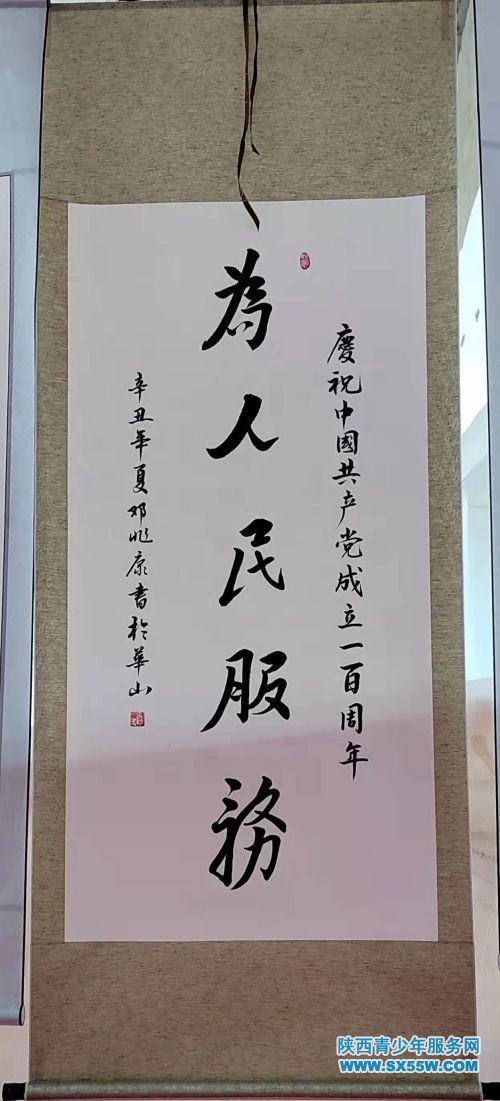 慶祝中國共产党成立一百周年
為人民服務
辛丑年夏邓兆康書於華山
陕西青少年服务网
www.sx55w.com